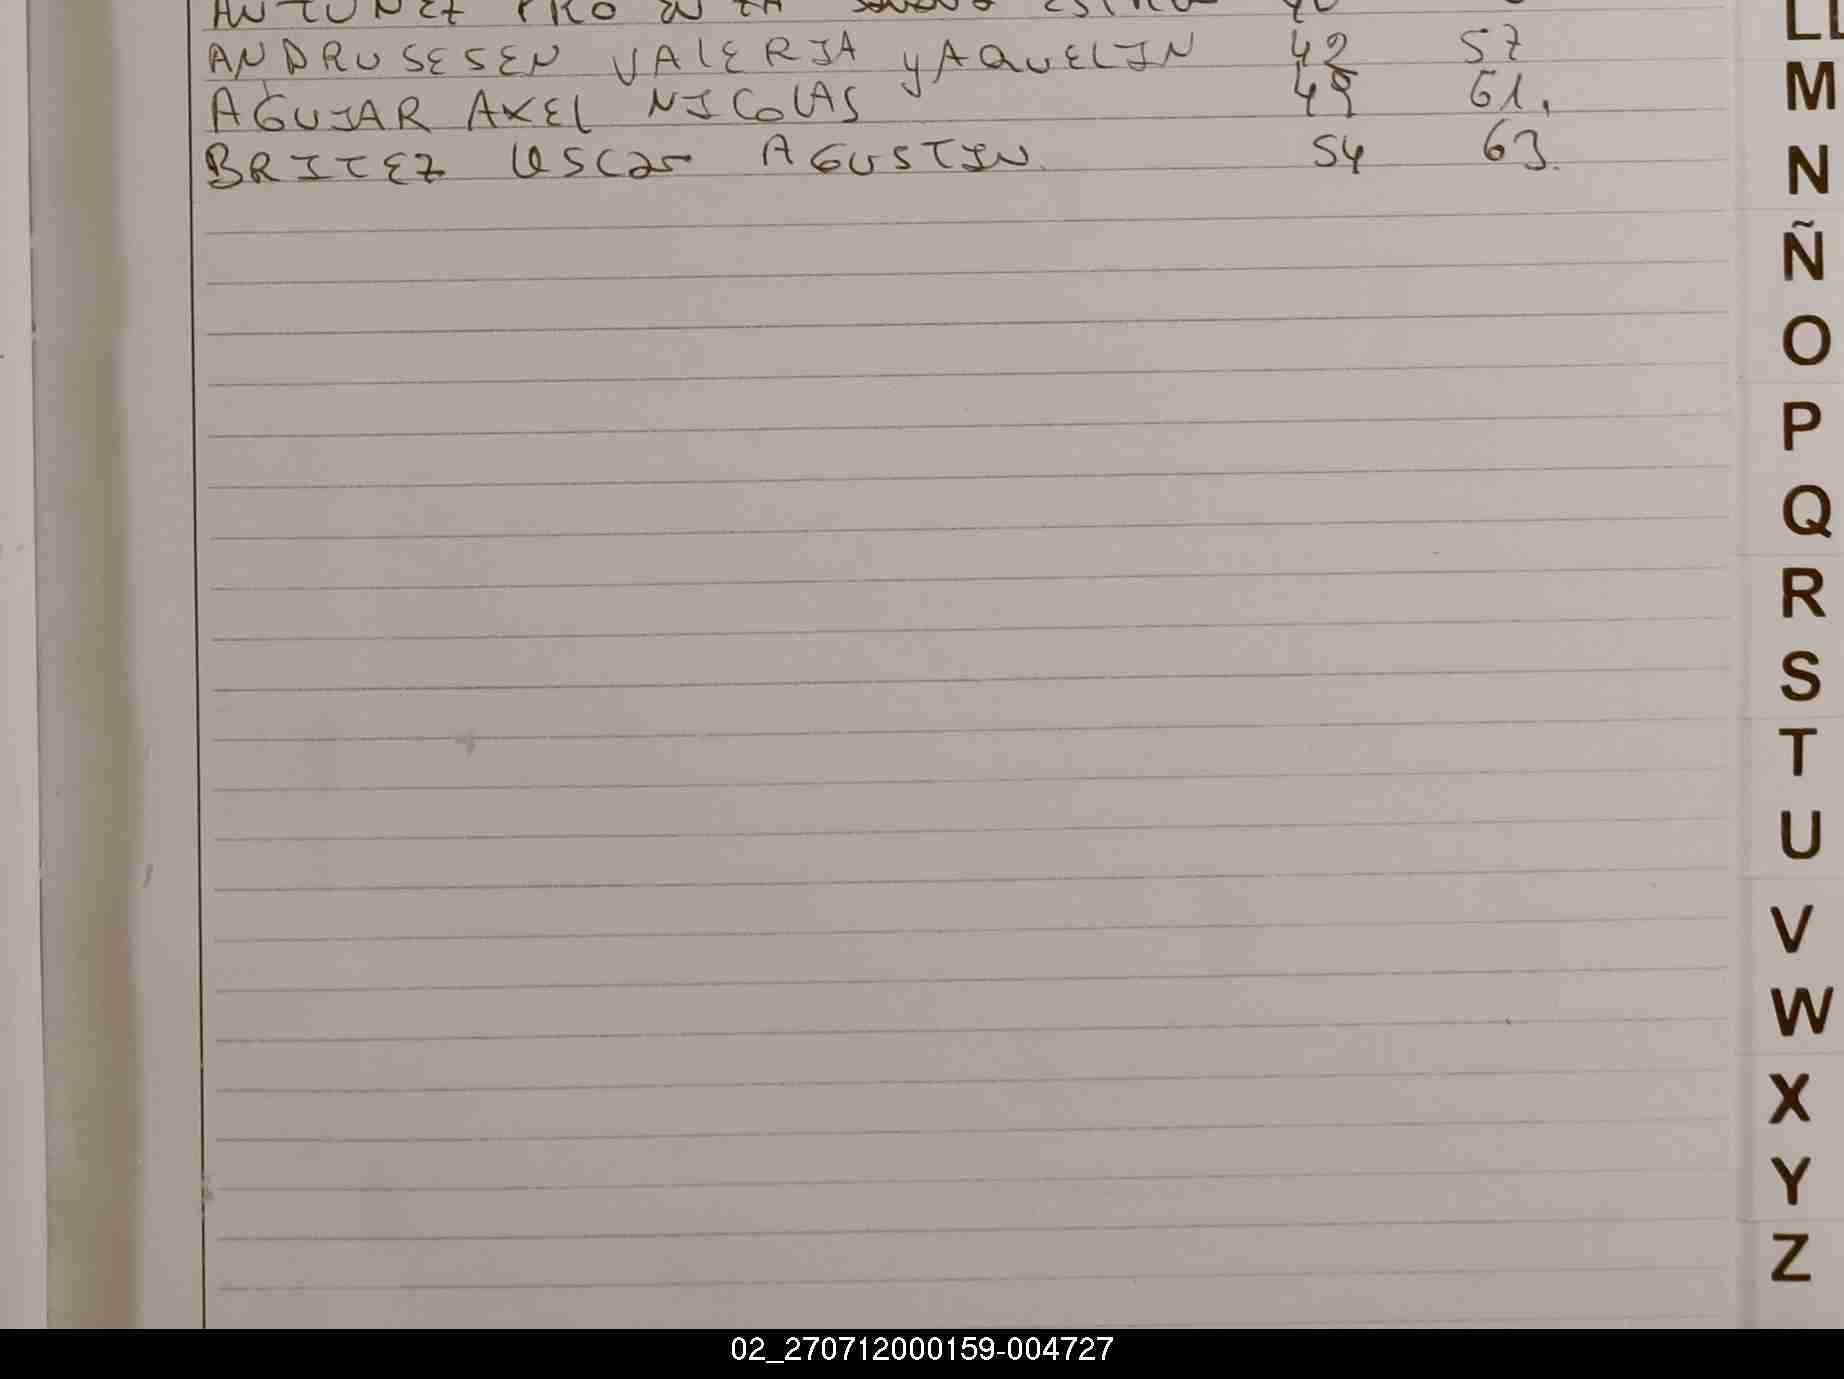 ANDRUSESEN VALERIA YAQUELIN 42 57
AGUIAR AXEL NICOLAS 49 61.
BRITEZ OSCAR AGUSTIN. 54 63.
M
N
Ñ
O
P
Q
R
S
T
U
V
W
X
Y
Z
02_270712000159-004727